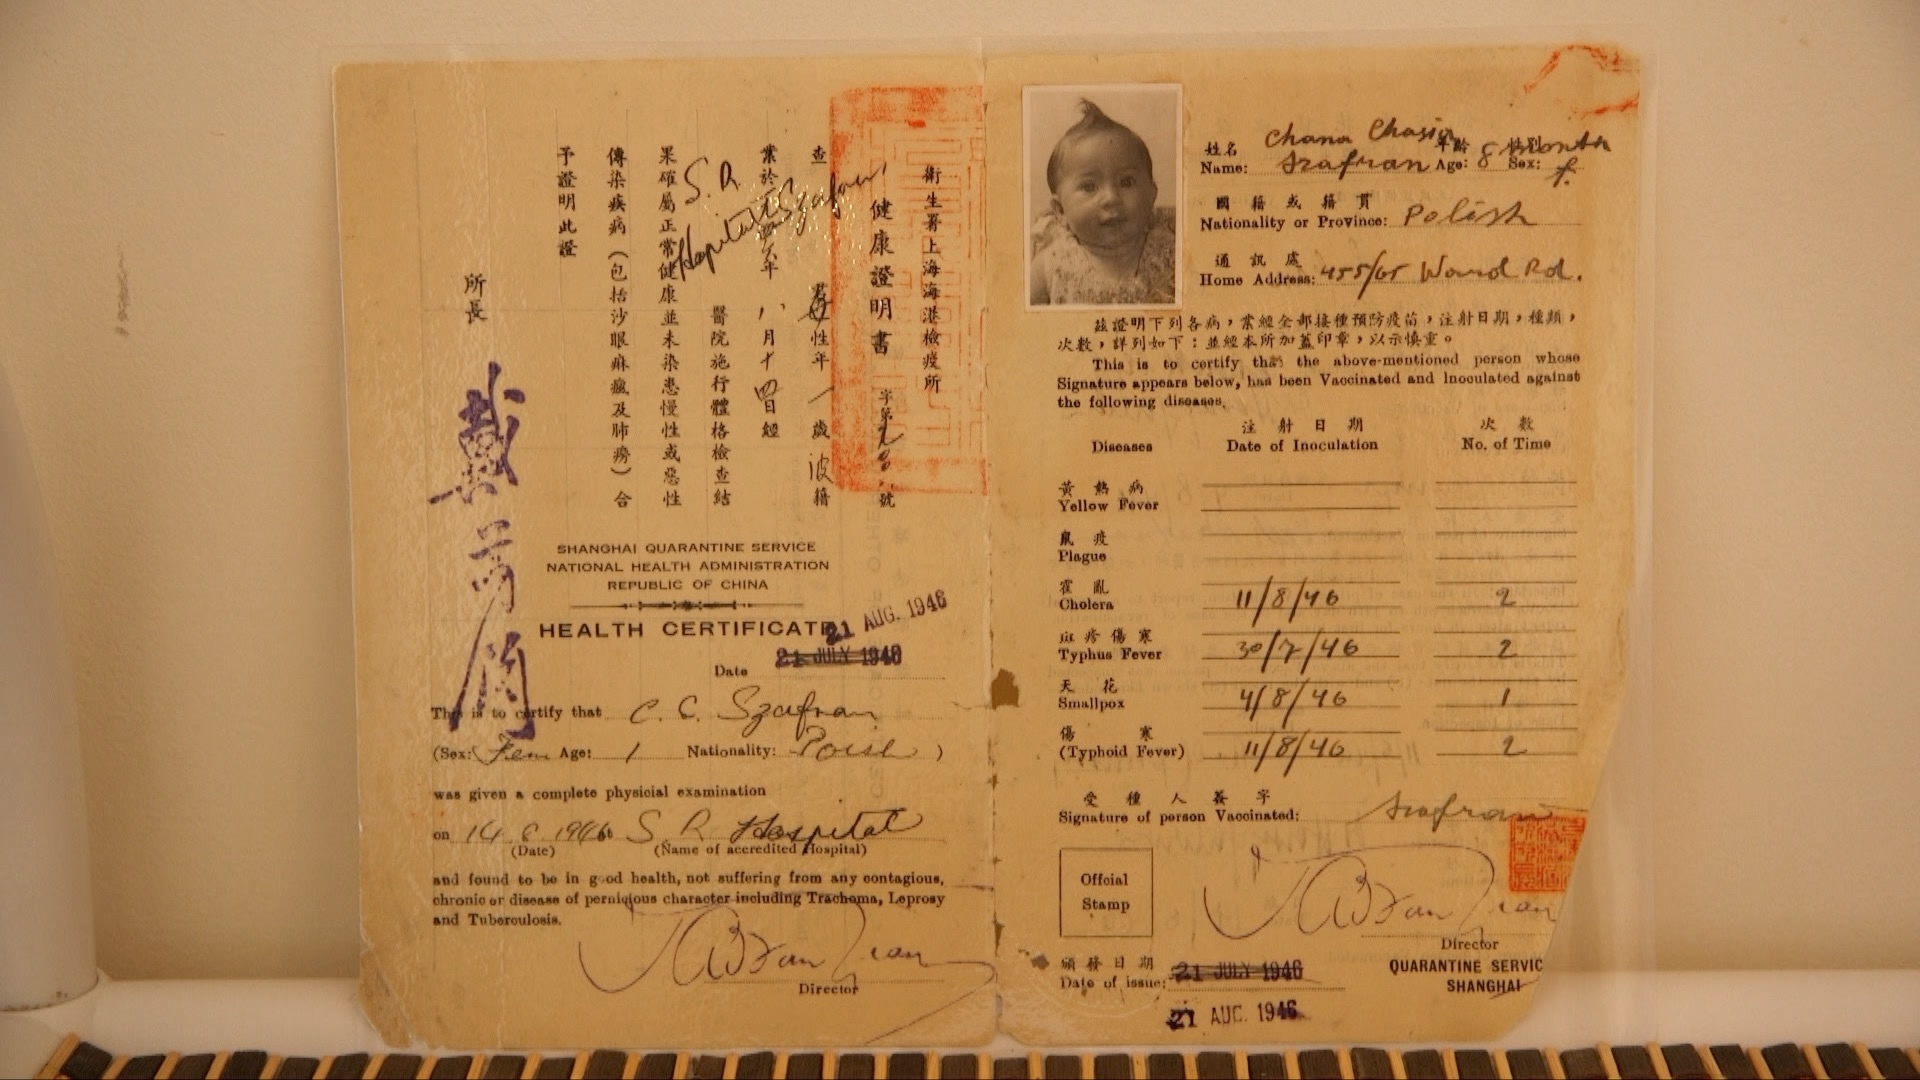 衛生署上海海港檢疫所
健康證明書
字第 號
查 Szafran 性年一歲波籍
業於 年八月十四日經
S. R. Hospital 醫院施行體格檢查結
果確屬正常健康並未染患慢性或惡性
傳染疾病(包括沙眼麻瘋及肺癆)合
予證明此證
所長
SHANGHAI QUARANTINE SERVICE
NATIONAL HEALTH ADMINISTRATION
REPUBLIC OF CHINA
HEALTH CERTIFICATE
21 AUG. 1946
Date 21 JULY 1946
This is to certify that C. C. Szafran
(Sex: Fem Age: 1 Nationality: Polish )
was given a complete physicial examination
on 14. 8. 1946 S. R. Hospital
(Date) (Name of accredited Hospital)
and found to be in good health, not suffering from any contagious,
chronic or disease of pernicious character including Trachoma, Leprosy
and Tuberculosis.
Director
姓名 年齡 性別
Chana Chasia month
Name: Szafran Age: 8 Sex: f.
國籍或籍貫
Nationality or Province: Polish
通訊處
Home Address: 455/65 Ward Rd.
茲證明下列各病,業經全部接種預防疫苗,注射日期,種類,
次數,詳列如下:並經本所加蓋印章,以示慎重。
This is to certify that the above-mentioned person whose
Signature appears below, has been Vaccinated and Inoculated against
the following diseases.
注射日期 次數
Diseases Date of Inoculation No. of Time
黃熱病
Yellow Fever
鼠疫
Plague
霍亂
Cholera 11/8/46 2
斑疹傷寒
Typhus Fever 30/7/46 2
天花
Smallpox 4/8/46 1
傷寒
(Typhoid Fever) 11/8/46 2
受種人簽字
Signature of person Vaccinated: Szafran
Offcial
Stamp
Director
QUARANTINE SERVIC
SHANGHAI
頒發日期
Date of issue: 21 JULY 1946
21 AUG. 1946